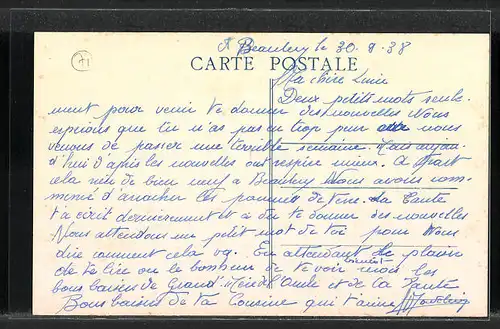 Beaubery le 30.9.38
CARTE POSTALE
Ma chère Lucie
Deux petits mots seule-
ment pour venir te donner des nouvelles Nous
espérons que tu n'as pas eu trop peur nous
venons de passer une terrible semaine. Mais aujour
d'hui d'après les nouvelles on respire mieux. A part
cela rien de bien neuf à Beaubery Nous avons com-
mencé d'arracher les pommes de terre. La Tante
t'a écrit dernièrement et a dû te donner des nouvelles
Nous attendons un petit mot de toi pour nous
dire comment cela va. En attendant le plaisir
de te lire ou le bonheur de te voir reçois les
bons baisers de Grand-Mère de l'Oncle et de la Tante
Bons baisers de ta Cousine qui t'aime